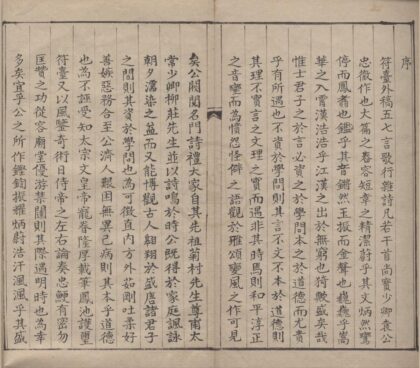 序
符臺外稿五七言歌行雜詩凡若干首尚寶少卿袁公
忠徹作也大篇之舂容短章之精潔蔚乎其文炳然鸞
停而鳳翥也鑑乎其音鏘然玉振而金聲也巍巍乎嵩
華之入霄漢浩浩乎江漢之出於無窮也猗歟盛矣哉
惟士君子之於言必資之於學問本之於道德而尤貴
乎有所遇也不資於學問則其言不文不本於道德則
其理不實言之文理之實而遇非其時焉則和平淳正
之音變而為憤怨怪僻之語觀於雅頌變風之作可見
矣公閥閱名門詩禮大家自其先祖菊村先生尊甫太
常少卿柳莊先生並以詩鳴於時公既得於家庭諷詠
朝夕濡染之益而又能博觀古人翱翔於盛應諸君子
之間則其資於學問也為可徵直內方外茹剛吐柔好
善嫉惡務合至公濟人艱困無異己病則其本乎道德
也為不誣受知太宗文皇帝寵眷隆厚載筆鳳池護璽
符臺又以風鑒奇術日侍帝之左右論奏忠鯁有密勿
匡贊之功從容廟堂優游集闥則其際遇明時也為幸
多矣宜乎公之所作鏗鍧振耀炳蔚浩汗渢渢乎其盛